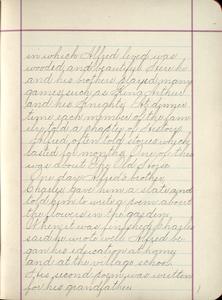 in which Alfred lived was
wooded and beautiful. Here he
and his brothers played many
games, such as King Arthur
and his Knights. At dinner
time each member of the fam
ily told a chapter of history.
Alfred often told stories which
lasted for months. One of these
was about The Old Horse.
One day Alfred's brother
Charles gave him a slate and
told him to write a poem about
the flowers in the garden.
When it was finished Charles
said he wrote well. Alfred be
gan his education at home
and at the village school.
His second poem was written
for his grandfather.